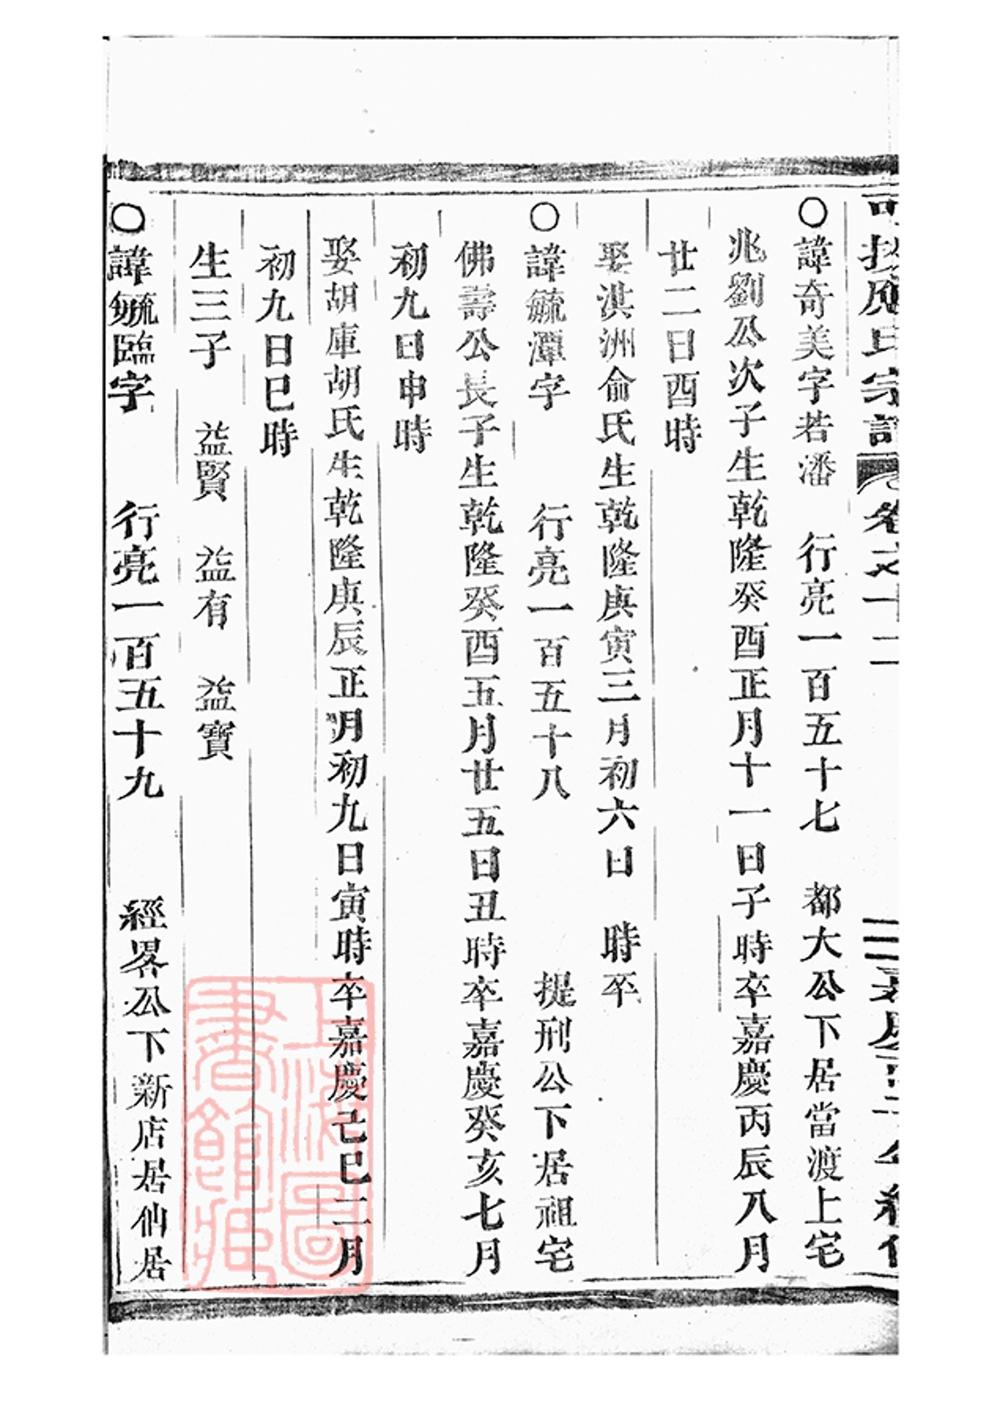 可投應氏宗譜 卷之十二
○諱奇美字若潘 行亮一百五十七 都大公下居當渡上宅
兆劉公次子生乾隆癸酉正月十一日子時卒嘉慶丙辰八月
廿二日酉時
娶淇洲俞氏生乾隆庚寅三月初六日 時卒
○諱毓潭字 行亮一百五十八 提刑公下居祖宅
佛壽公長子生乾隆癸酉五月廿五日丑時卒嘉慶癸亥七月
初九日申時
娶胡庫胡氏生乾隆庚辰正月初九日寅時卒嘉慶己巳二月
初九日巳時
生三子 益賢 益有 益寶
○諱毓臨字 行亮一百五十九 經畧公下新店居仙居
上海圖書館藏